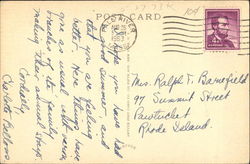 POST CARD
I hope you have had
a good summer, and
that you are feeling
better. Here things have
gone as usual with seven
branches of the family
making their annual stops.
Cordially
Charlotte Bellows
Mrs. Ralph T. Barnefield
97 Summer Street
Pawtucket
Rhode Island